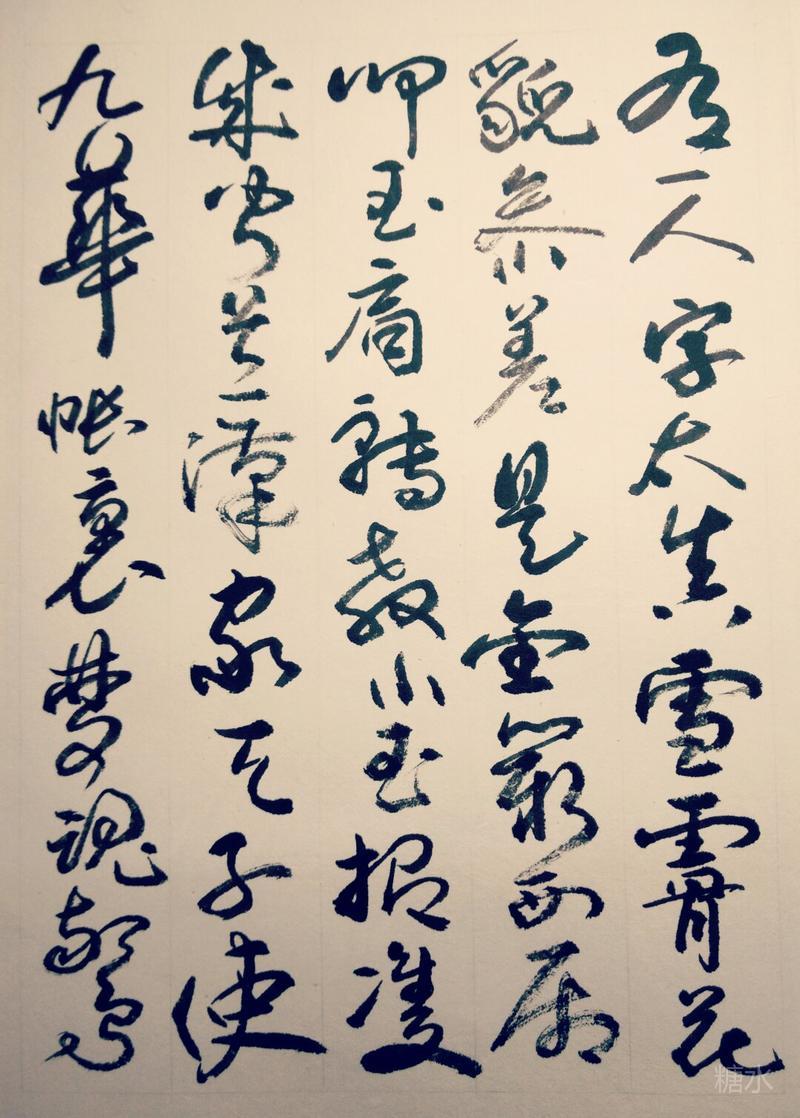 有一人字太真雪膚花
貌參差是金闕西廂
叩玉扃轉教小玉報雙
成聞道漢家天子使
九華帳裏夢魂驚
糖水